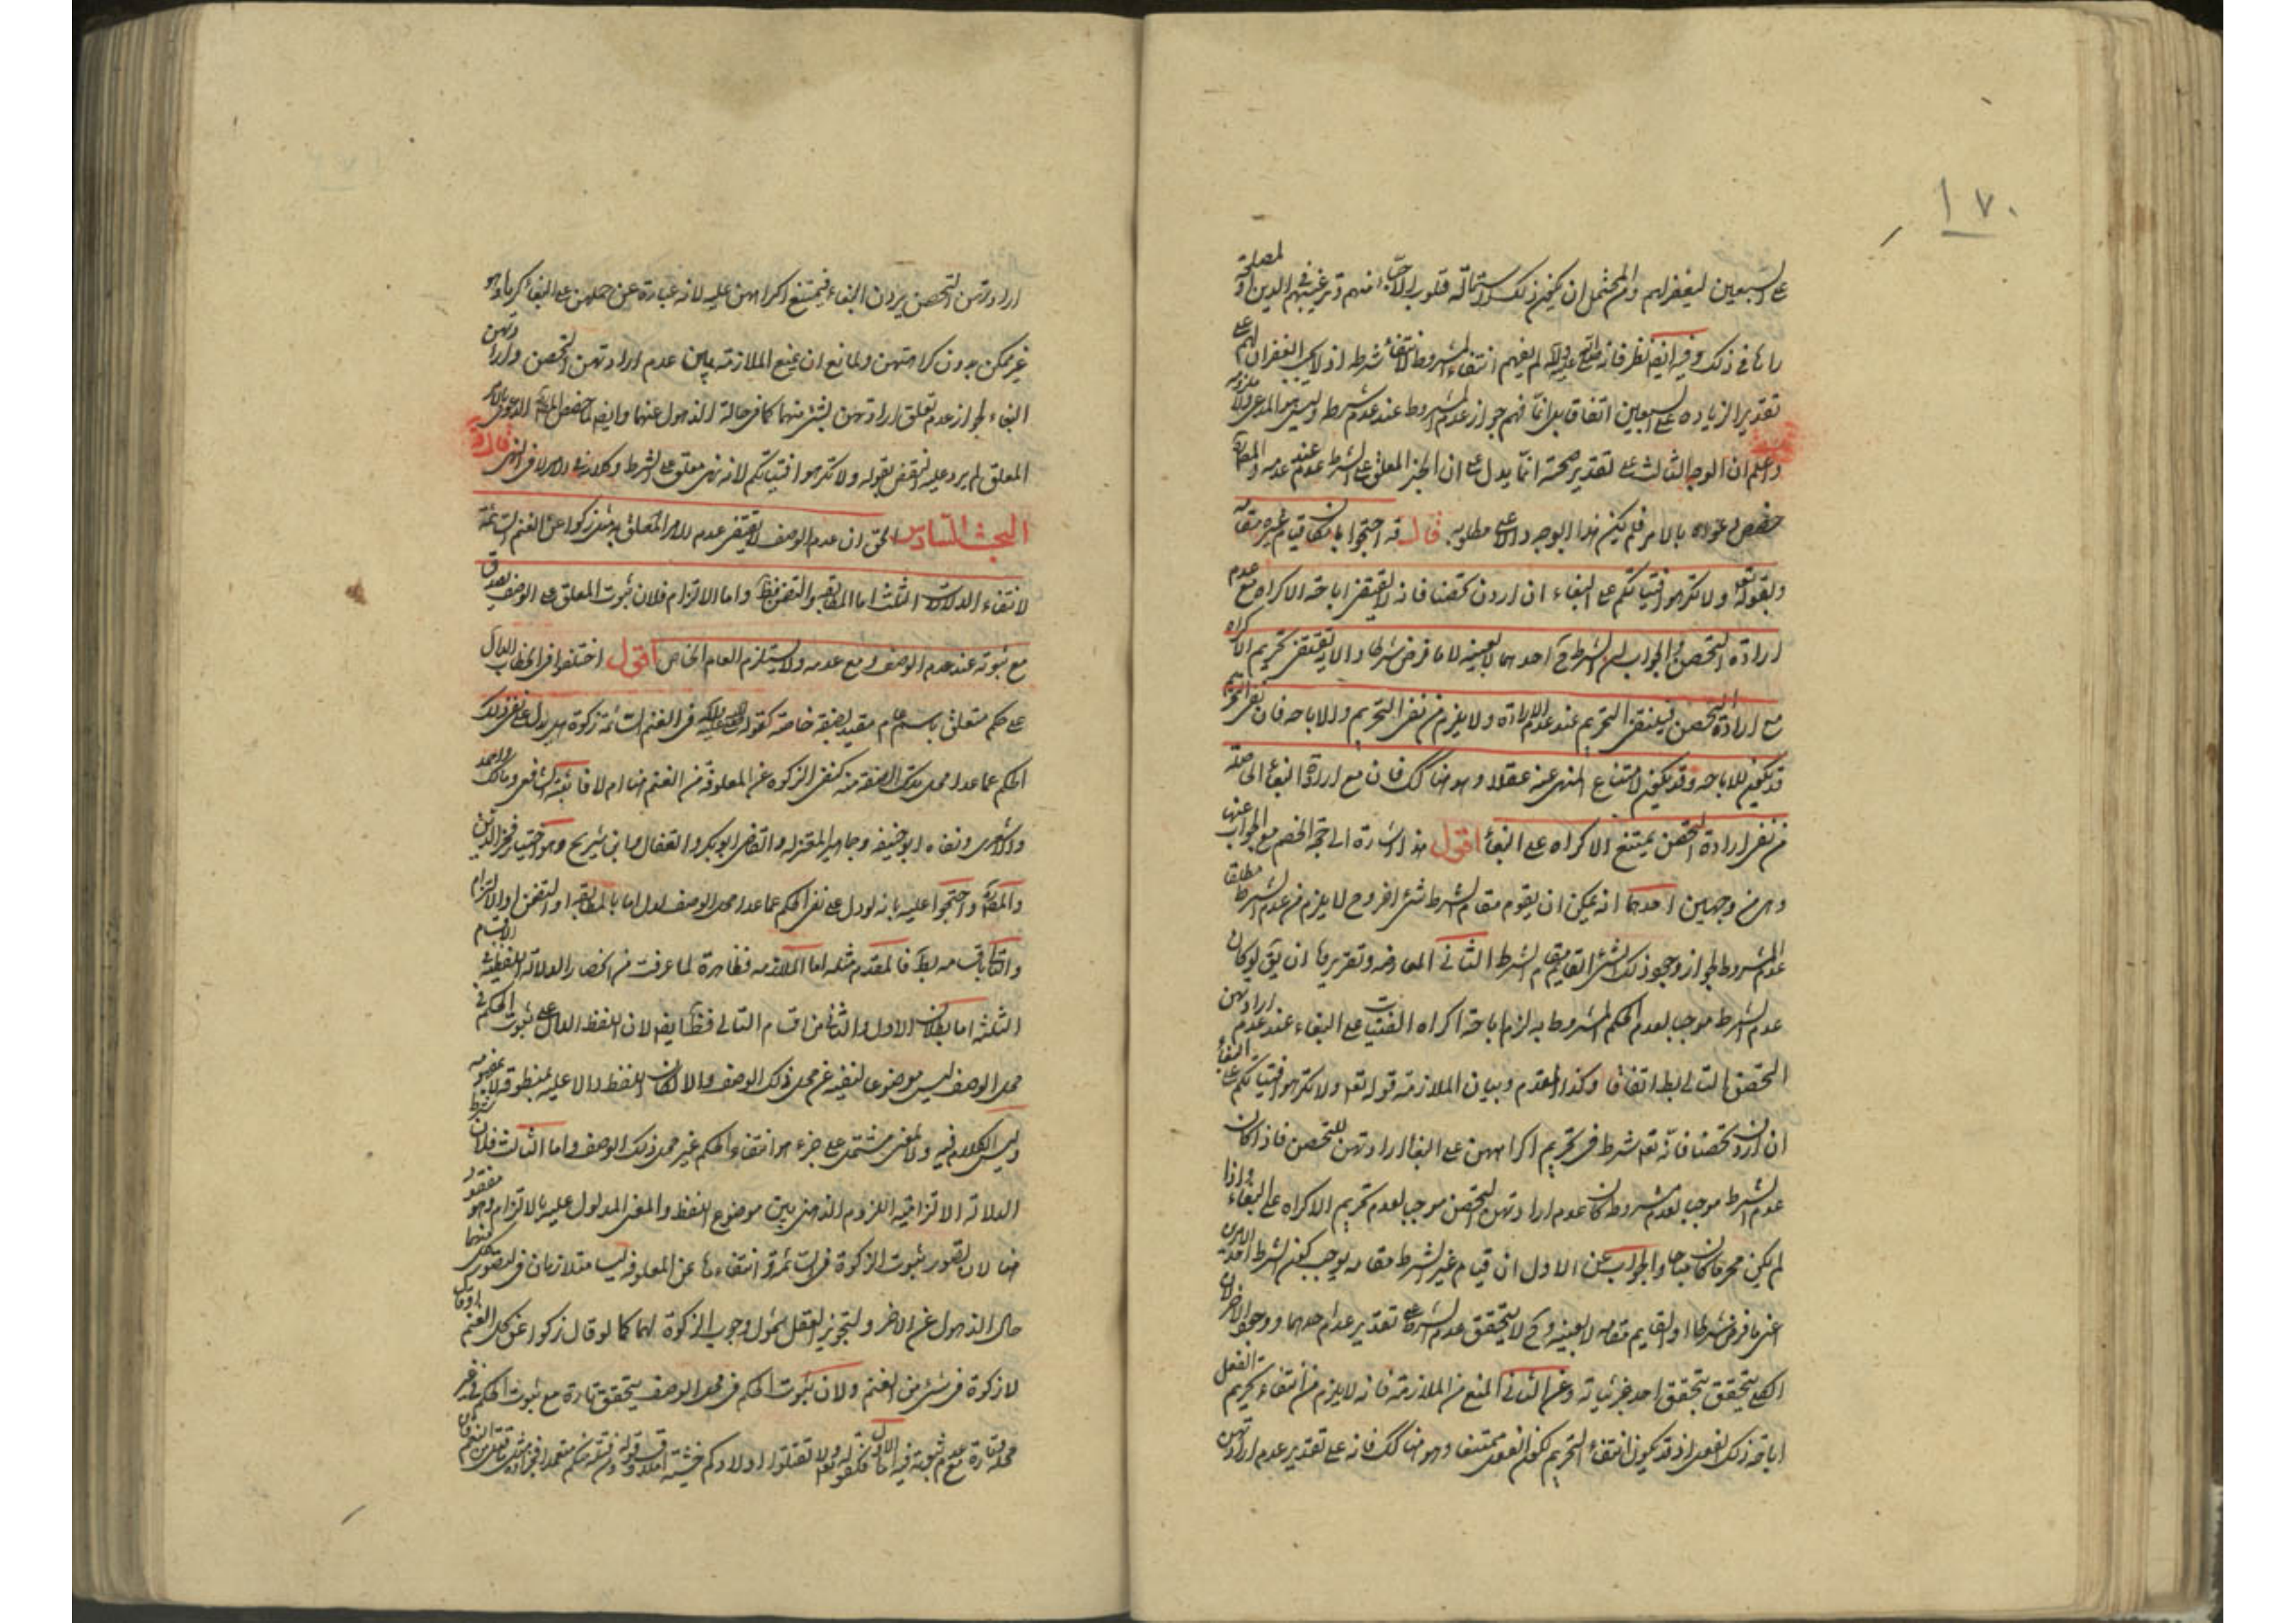 ١٧٠
على السبعين ليغفر لهم والمحتمل ان يكون ذلك لاستمالة قلوب الاحياء منهم وترغيبهم في الدين او لمصلحة
رآها في ذلك وفيه ايضا نظر فانه على لم يفهم انتفاء المشروط لانتفاء شرطه اذ لا يجب الغفران لهم على
تقدير الزيادة على السبعين اتفاقا بل انما فهم جواز عدم المشروط عند عدم شرطه وليس هو المدعى ولا ملزومه
واعلم ان الوجه الثالث على تقدير صحته انما يدل على ان الخبر المعلق على الشرط عدم عند عدمه والمصنف
خصص دعواه بالامر فلم يكن هذا الوجه دالا على مطلوبه قال قده احتجوا بامكان قيام غيره مقامه
وبقوله تعالى ولا تكرهوا فتياتكم على البغاء ان اردن تحصنا فانه لا يقتضي اباحة الاكراه مع عدم
ارادة التحصن والجواب ان الشرط ح احدهما لا بعينه لا ما فرض شرطا والاية يقتضي تحريم الاكراه
مع ارادة التحصن فينتفي التحريم عند عدم الارادة ولا يلزم من نفي التحريم والاباحه فان نفي التحريم
قد يكون للاباحه وقد يكون لامتناع المنهى عنه عقلا وهو هنا كك فان مع ارادة البغاء الحاصلة
من نفي ارادة التحصن يمتنع الاكراه على البغاء اقول هذا اشارة الى حجة الخصم مع الجواب عنها
وهي من وجهين احدهما انه يمكن ان يقوم مقام الشرط شئ اخر وح لا يلزم من عدم الشرط مطلقا
عدم المشروط لجواز وجود ذلك الشئ القايم مقام الشرط الثاني المعارضه وتقريرها ان يق لو كان
عدم الشرط موجب لعدم الحكم المشروط به لزم اباحة اكراه الفتيات على البغاء عند عدم ارادتهن
التحصن والتالي بط اتفاقا وكذا المقدم وبيان الملازمة قوله تعه ولا تكرهوا فتياتكم على البغاء
ان اردن تحصنا فانه تعه شرط في تحريم اكراههن على البغاء ارادتهن للتحصن فاذا كان
عدم الشرط موجب لعدم مشروطه كان عدم ارادتهن التحصن موجب لعدم تحريم الاكراه على البغاء واذا
لم يكن محرما كان مباحا والجواب عن الاول ان قيام غير الشرط مقامه يوجب كون الشرط احد الامرين
اعني ما فرض شرطا او القايم مقامه لا بعينه وح لا يتحقق عدم الشرط على تقدير عدم احدهما ووجود الاخر لان
الكلي يتحقق بتحقق احد جزئياته وعن الثاني المنع من الملازمة فانه لا يلزم من انتفاء تحريم الفعل
اباحة ذلك الفعل اذ قد يكون انتفاء التحريم لكون الفعل ممتنعا وهو هنا كك فانه على تقدير عدم ارادتهن
ارادتهن التحصن يردن البغاء فيمتنع اكراههن عليه لانه عبارة عن حملهن على البغاء كرها وهو
غير ممكن بدون كراهتهن ولمانع ان يمنع الملازمة بين عدم ارادتهن التحصن وارادتهن
البغاء لجواز عدم تعلق ارادتهن بشئ منهما كما في حالة الذهول عنهما وايضا لما خصص الدعوى بالامر
المعلق لم يرد عليه النقض بقوله ولا تكرهوا فتياتكم لانه نهى معلق على الشرط وكلامنا في الامر لا في النهى قال قده
البحث السادس الحق ان عدم الوصف لا يقتضي عدم الامر المعلق به مثل زكوا عن الغنم السائمة
لانتفاء الدلالات الثلث اما المطابقه والتضمن فظ واما الالتزام فلان ثبوت المعلق على الوصف يصدق
مع ثبوته عند عدم الوصف ومع عدمه ولا يستلزم العام الخاص اقول اختلفوا في الخطاب الدال
على حكم متعلق باسم عام مقيد بصفة خاصة كقوله في الغنم السائمة زكوة هل يدل على نفى ذلك
الحكم عما عدا محل تلك الصفة منه كنفى الزكوة عن المعلوفة من الغنم هنا ام لا فاثبته الشافعي ومالك واحمد
والاشعرى ونفاه ابوحنيفه وجماهير المعتزله والقاضى ابوبكر والقفال وابن شريح وهو اختيار فخر الدين
والمصنف واحتجوا عليه بانه لو دل على نفى الحكم عما عدا محل الوصف لدل اما بالمطابقه او التضمن او الالتزام
والتالي باقسامه بط فالمقدم مثله اما الملازمه فظاهرة لما عرفت من انحصار الدلالة اللفظية في الاقسام
الثلثه اما بطلان الاول والثاني من اقسام التالي فظ ايضا لان اللفظ الدال على ثبوت الحكم في
محل الوصف ليس موضوعا لنفيه عن غير محل ذلك الوصف والا لكان اللفظ دالا عليه بمنطوقه لا بمفهومه
وليس الكلام فيه ولا لمعنى مشتمل على جزء هو انتفاء الحكم غير محل ذلك الوصف واما الثالث فلان شرط
الدلالة الالتزامية اللزوم الذهني بين موضوع اللفظ والمعنى المدلول عليه بالالتزام وهو مفقود
هنا لان تصور ثبوت الزكوة في السائمة وانتفاءها عن المعلوفه ليسا متلازمان في التصور كل منهما
حال الذهول عن الاخر ولتجويز العقل شمول وجوب الزكوة لهما كما لو قال زكوا عن كل الغنم او قال
لا زكوة في شئ من الغنم ولان ثبوت الحكم في محل الوصف يتحقق تارة مع ثبوت الحكم في غير
محله وتارة مع عدم ثبوته فيه اما الاول فكقوله تعه ولا تقتلوا اولادكم خشية املاق وقوله ومن قتله منكم متعمدا فجزاء مثل ما قتل من النعم فان